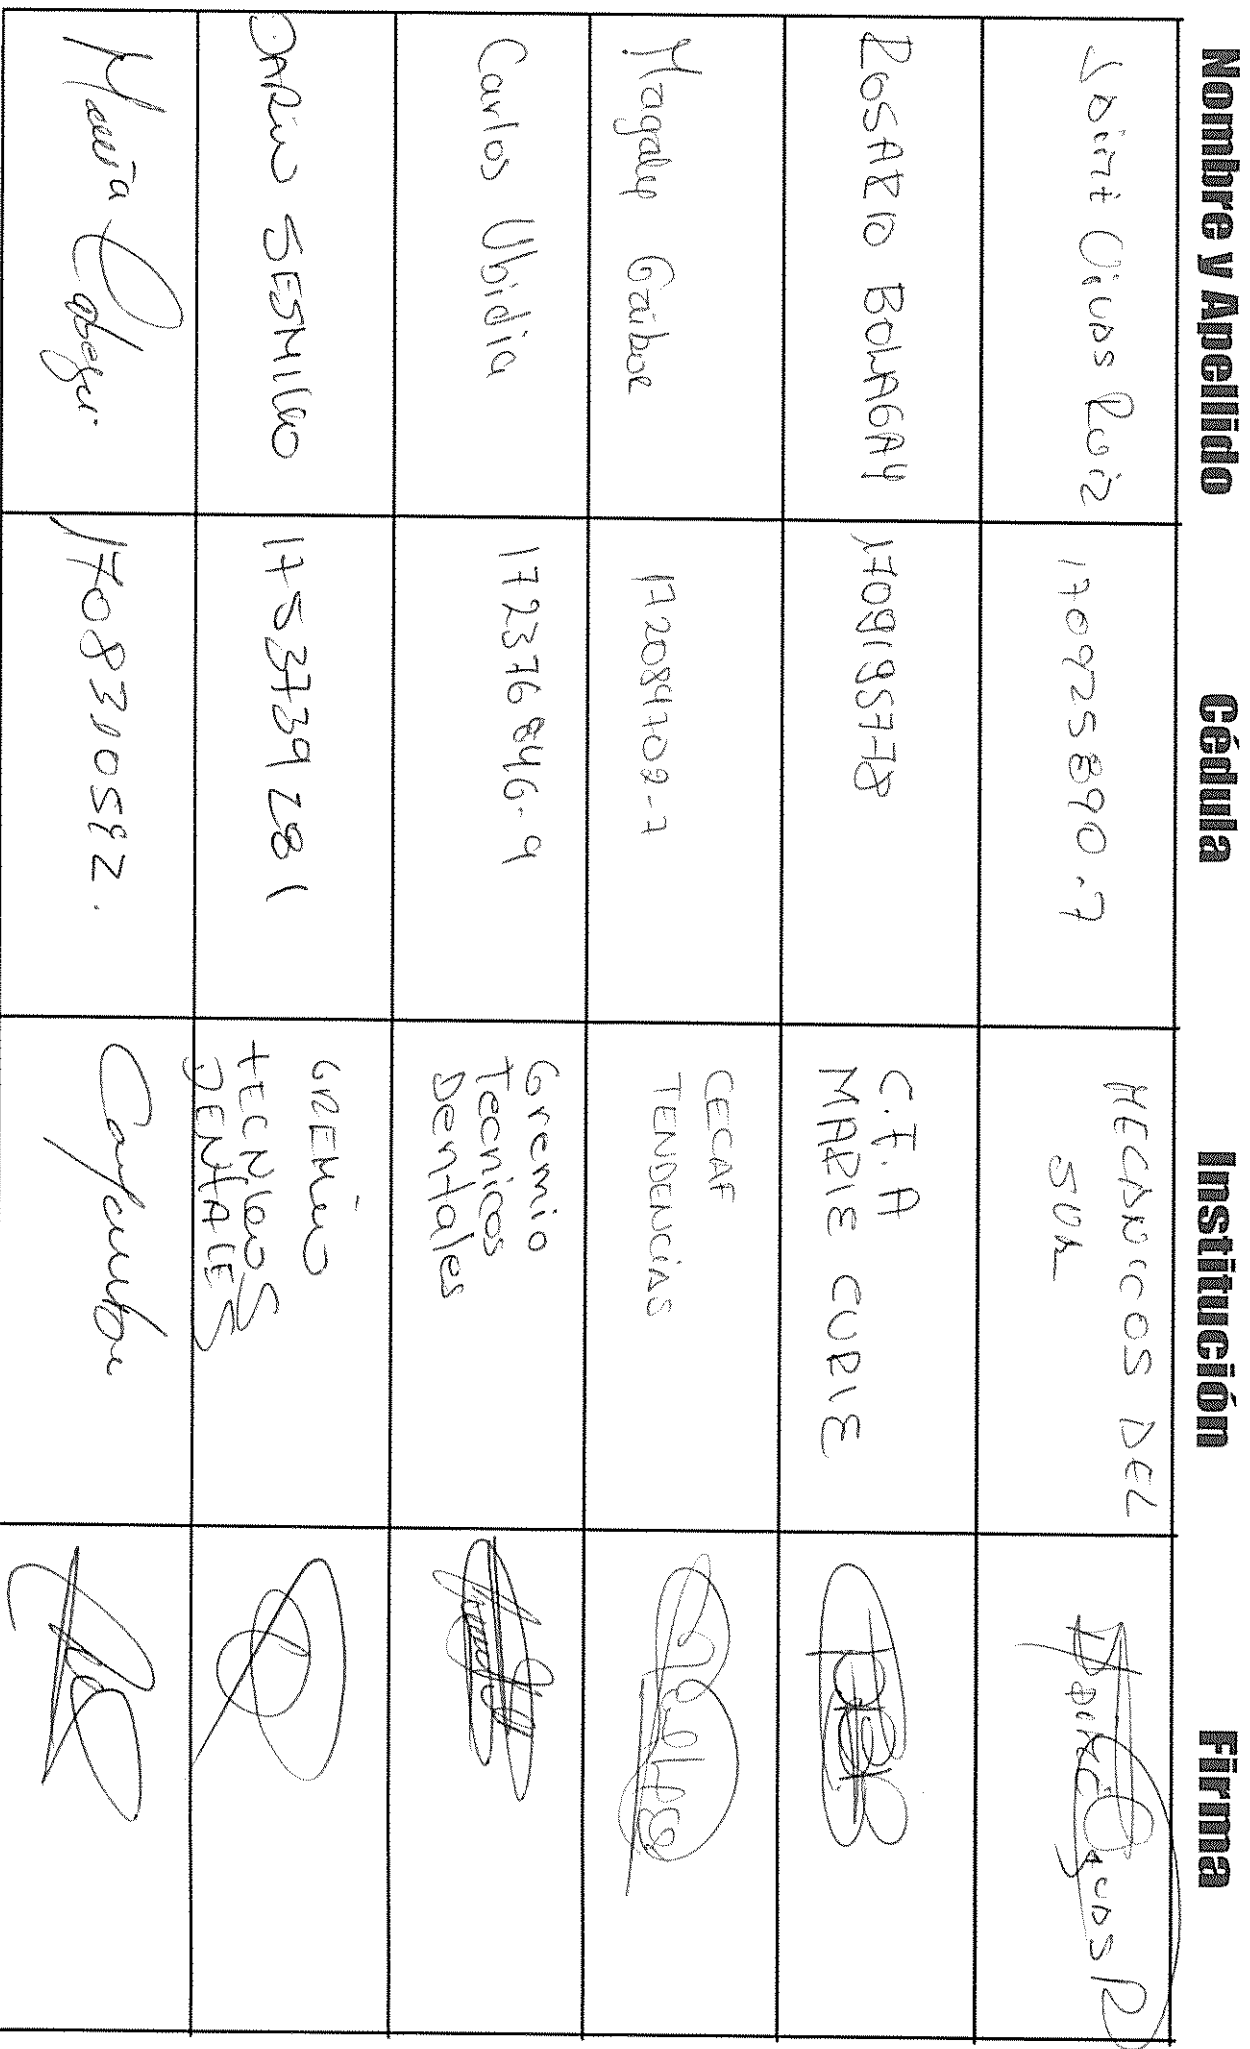 Nombre y Apellido Cédula Institución Firma
Ruiz 170925890.7 MECANICOS DEL
SUR
ROSARIO BOLAGAY 170919577-8 C.F.A
MARIE CURIE
Magaly Gaibor 172084702-7 CECAF
TENDENCIAS
Carlos Ubidia 172376846.9 Gremio
Tecnicos
Dentales
DARIO 1753739281 GREMIO
TECNICOS
DENTALES
María 1708310592.